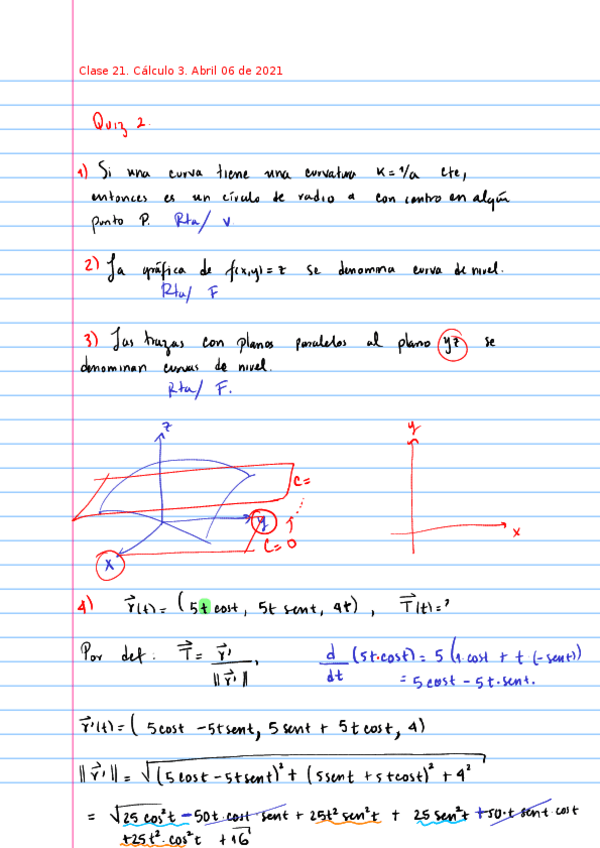 Clase 21. Cálculo 3. Abril 06 de 2021
Quiz 2.
1) Si una curva tiene una curvatura K = 1/a cte,
entonces es un círculo de radio a con centro en algún
punto P. Rta/ V
2) La gráfica de f(x,y) = z se denomina curva de nivel.
Rta/ F
3) Las trazas con planos paralelos al plano yz se
denominan curvas de nivel.
Rta/ F.
z y
C =
y
C = 0 x
x
4) r⃗(t) = (5t cost, 5t sent, 4t), T⃗(t) = ?
Por def: T⃗ = r⃗' / ||r⃗'||, d/dt (5t·cost) = 5(1·cost + t·(-sent))
= 5cost - 5t·sent.
r⃗'(t) = (5cost - 5tsent, 5sent + 5tcost, 4)
||r⃗'|| = √(5cost - 5tsent)² + (5sent + 5tcost)² + 4²
= √25cos²t - 50t·cost·sent + 25t²sen²t + 25sen²t + 50·t·sent·cost
+25t²·cos²t + 16